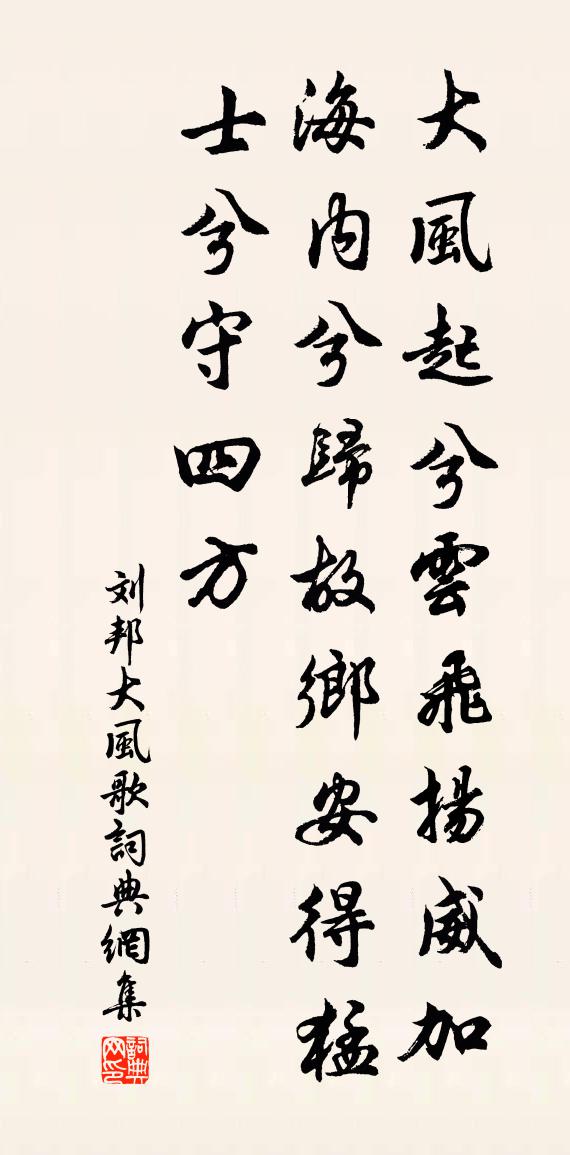 大風起兮雲飛揚威加
海内兮歸故鄉安得猛
士兮守四方
刘邦大風歌詞典網集
詞典
网印